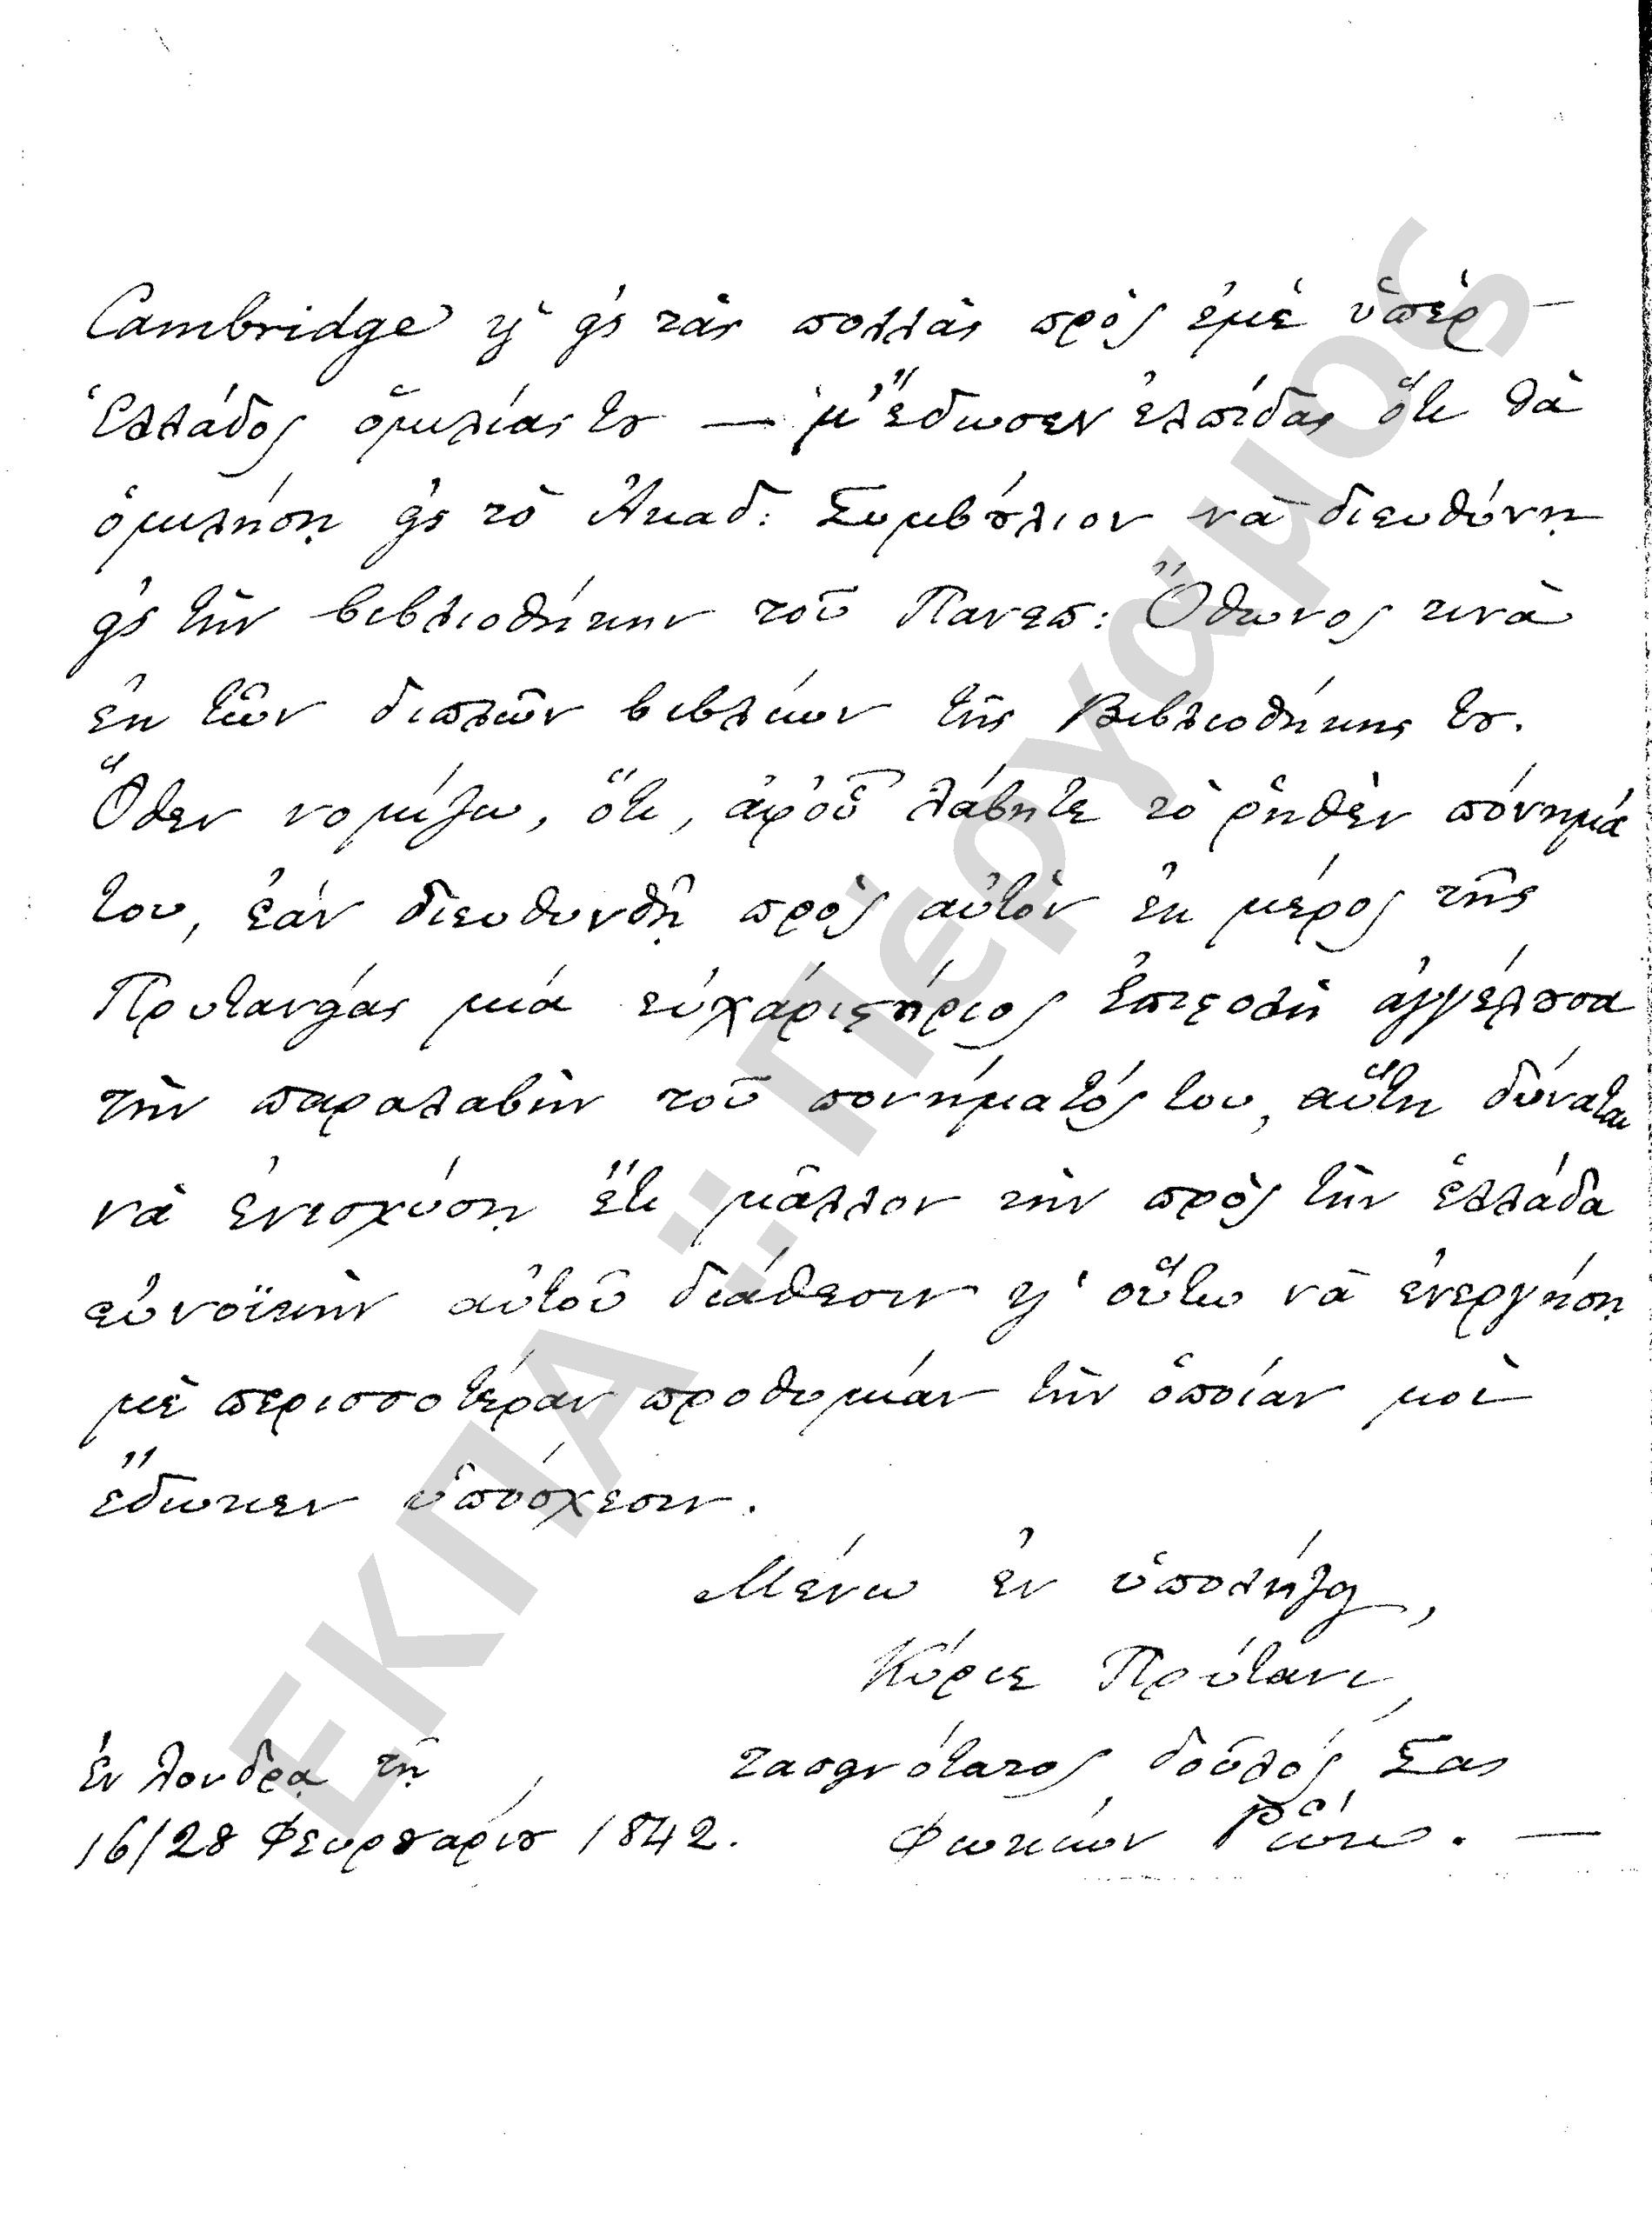 Cambridge ϗ εἰς τὰς πολλὰς πρὸς ἐμὲ ὑπὲρ —
Ἑλλάδος ὁμιλίας τȣ — μ' ἔδωσεν ἐλπίδας ὅτι θὰ
ὁμιλήσῃ εἰς τὸ Ἀκαδ: Συμβȣ́λιον νὰ διευθύνῃ
εἰς τὴν βιβλιοθήκην τοῦ Πανεπ: Ὄθωνος τινὰ
ἐκ τῶν διπλῶν βιβλίων τῆς Βιβλιοθήκης τȣ.
Ὅθεν νομίζω, ὅτι, ἀφ' οὗ λάβητε τὸ ῥηθὲν πόνημά
του, ἐὰν διευθυνθῇ πρὸς αὐτὸν ἐκ μέρος τῆς
Πρυτανείας μιὰ εὐχαριϛήριος ἐπιϛολὴ ἀγγέλȣσα
τὴν παραλαβὴν τοῦ πονήματός του, αὕτη δύναται
νὰ ἐνισχύσῃ ἔτι μᾶλλον τὴν πρὸς τὴν Ἑλλάδα
εὐνοϊκὴν αὐτοῦ διάθεσιν ϗ οὕτω νὰ ἐνεργήσῃ
μὲ περισσοτέραν προθυμίαν τὴν ὁποίαν μοὶ
ἔδωκεν ὑπόσχεσιν.
Μένω ἐν ὑπολήψει,
Κύριε Πρύτανι,
ταπεινότατος δοῦλός Σας
Ἐν Λονδρᾳ τῇ
16/28 Φευρȣαρίȣ 1842.
Φωκίων Ῥώκ. —
ΕΚΠΑ :: Πέργαμος